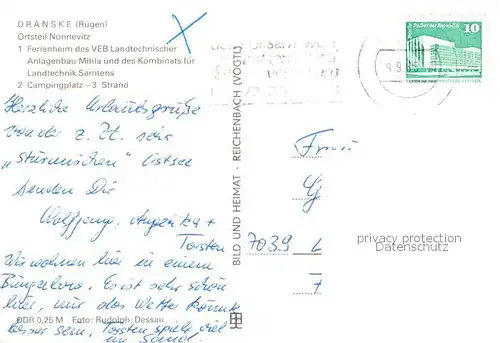 DRANSKE (Rügen)
Ortsteil Nonnevitz
1 Ferienheim des VEB Landtechnischer
Anlagenbau Mihla und des Kombinats für
Landtechnik Samtens
2 Campingplatz – 3 Strand
Herzliche Urlaubsgrüße
von der z. Zt. sehr
„stürmischen“ Ostsee
senden Dir
Wolfgang, Angelika +
Torsten
Wir wohnen hier in einem
Bungalow. Es ist sehr schön
hier, nur das Wetter könnte
besser sein. Torsten spielt viel
im Sand.
DDR 0,25 M Foto: Rudolph, Dessau
BILD UND HEIMAT · REICHENBACH (VOGTL)
10
Palast der Republik
Frau
7039 L
privacy protection
Datenschutz